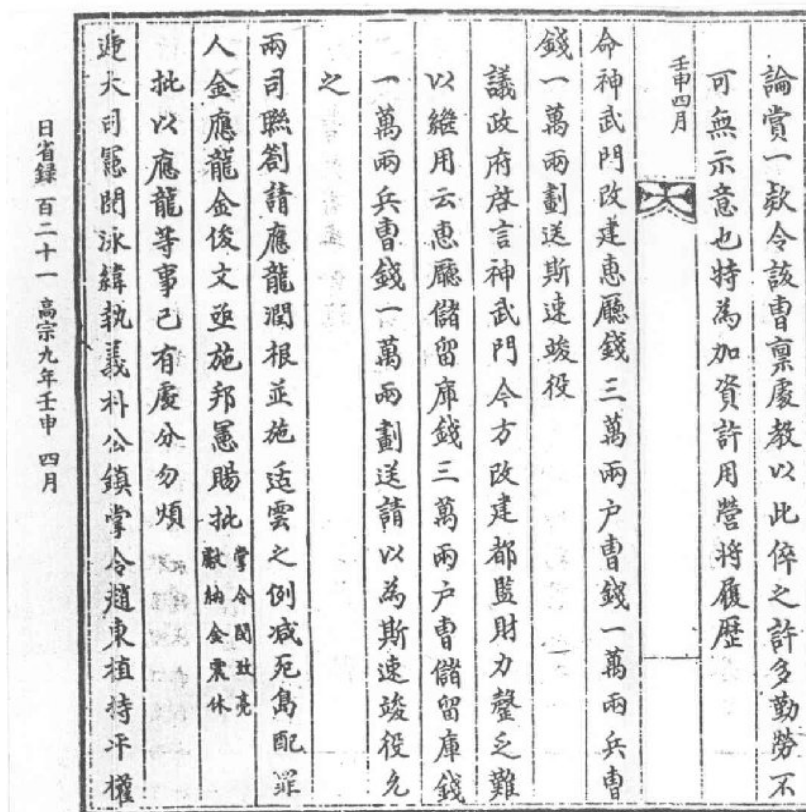 論賞一款令該曹稟處教以此倅之許多勤勞不
可無示意也特為加資許用營將履歷
壬申四月
命神武門改建惠廳錢三萬兩戶曹錢一萬兩兵曹
錢一萬兩劃送斯速竣役
議政府啓言神武門今方改建都監財力罄乏難
以繼用云惠廳儲留庫錢三萬兩戶曹儲留庫錢
一萬兩兵曹錢一萬兩劃送請以為斯速竣役允
之
兩司聯劄請應龍潤根並施适雲之例減死島配罪
人金應龍金俊文亟施邦憲賜批掌令閔致亮獻納金震休
批以應龍等事已有處分勿煩
遞大司憲閔泳緯執義朴公鎮掌令趙東植持平權
日省錄 百二十一 高宗九年壬申 四月